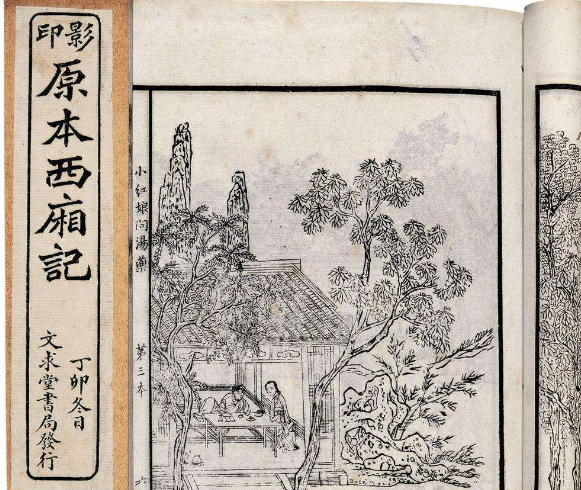 影印
原本西廂記
丁卯冬日
文求堂書局發行
小紅娘問湯藥
第三本
六